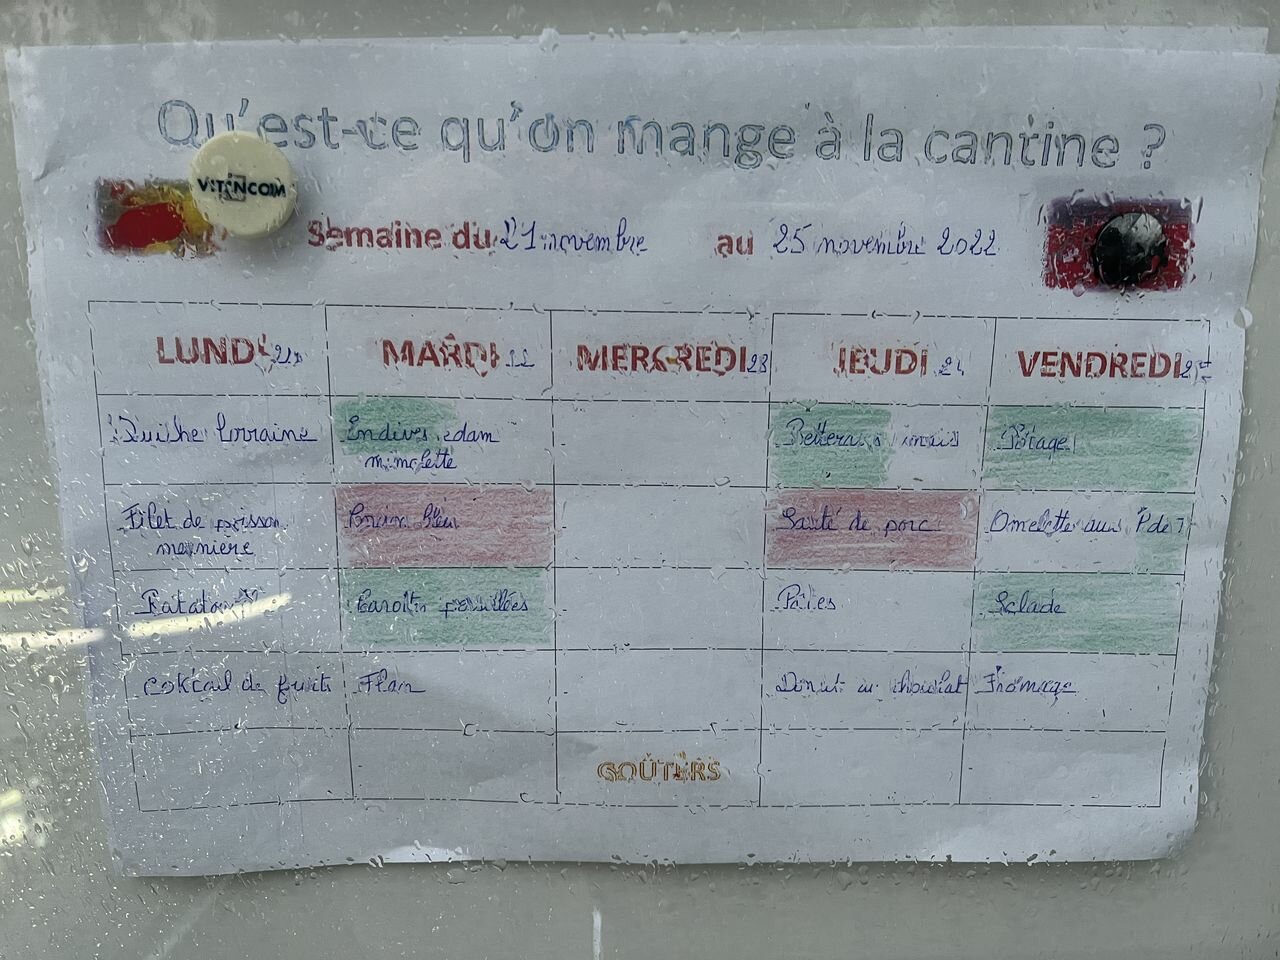 Qu'est-ce qu'on mange à la cantine ?
VITINCOM
Semaine du 21 novembre au 25 novembre 2022
LUNDI 21 MARDI 22 MERCREDI JEUDI 24 VENDREDI 25
Quiche lorraine Endives edam Betterave maïs Potage
mimolette
Filet de poisson Sauté de porc Omelette aux P de T
meunière
Carottes persillées Pâtes Salade
coktail de fruits Flan Donut au chocolat Fromage
GOÛTERS